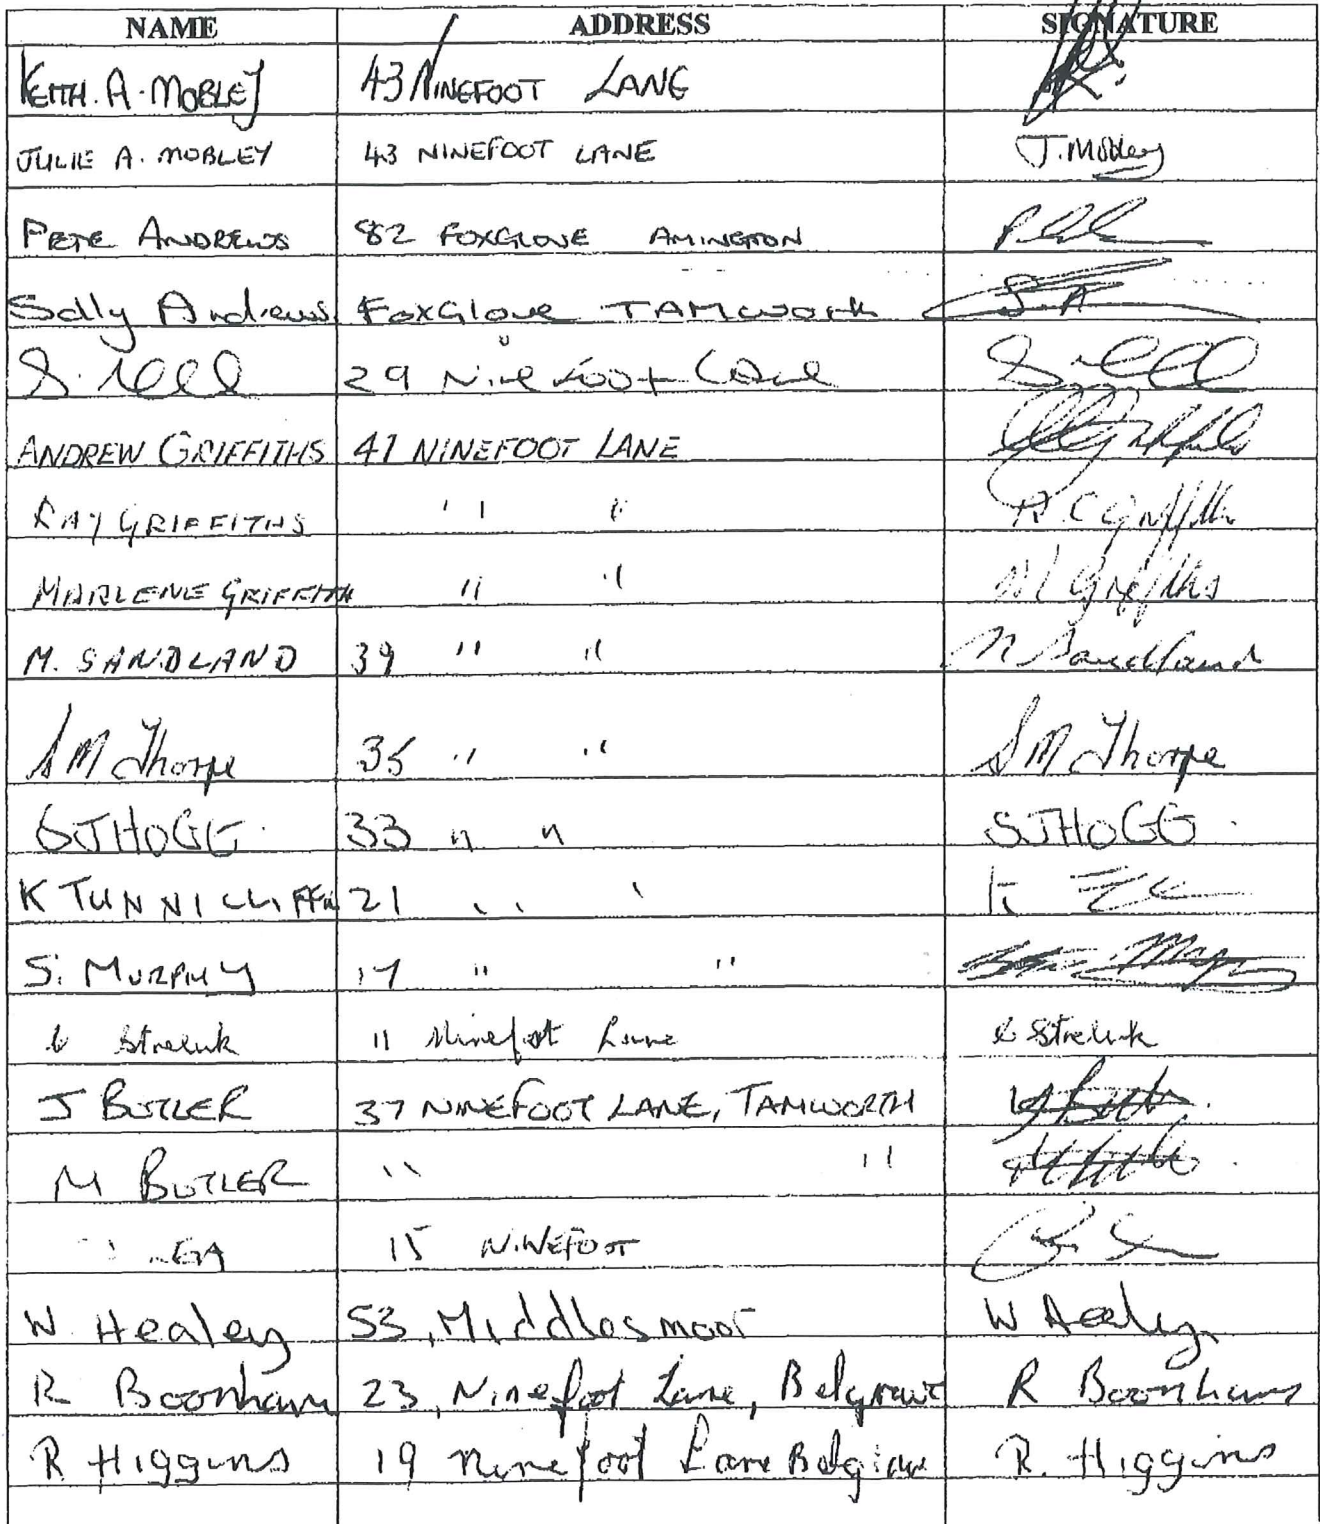 NAME ADDRESS SIGNATURE
KEITH. A. MOBLEY 43 NINEFOOT LANE
JULIE A. MOBLEY 43 NINEFOOT LANE J. Mobley
PETE ANDREWS 82 FOXGLOVE AMINGTON
Sally Andrews FoxGlove TAMWORTH S.A
29 Ninefoot Lane
ANDREW GRIFFITHS 41 NINEFOOT LANE
RAY GRIFFITHS " " R C Griffiths
MARLENE GRIFFITH " " M Griffiths
M. SANDLAND 39 " " M Sandland
S M Thorpe 35 " " S M Thorpe
SJHOGG 33 " " SJHOGG
K TUNNICLIFFE 21 " "
S. MURPHY 17 " "
Streluk 11 Ninefoot Lane Streluk
J BUTLER 37 NINEFOOT LANE, TAMWORTH
M BUTLER " "
15 NINEFOOT
W Healey 53, Middlesmoor W Healey
R Boonham 23, Ninefoot Lane, Belgrave R Boonham
R Higgins 19 Ninefoot Lane Belgrave R. Higgins